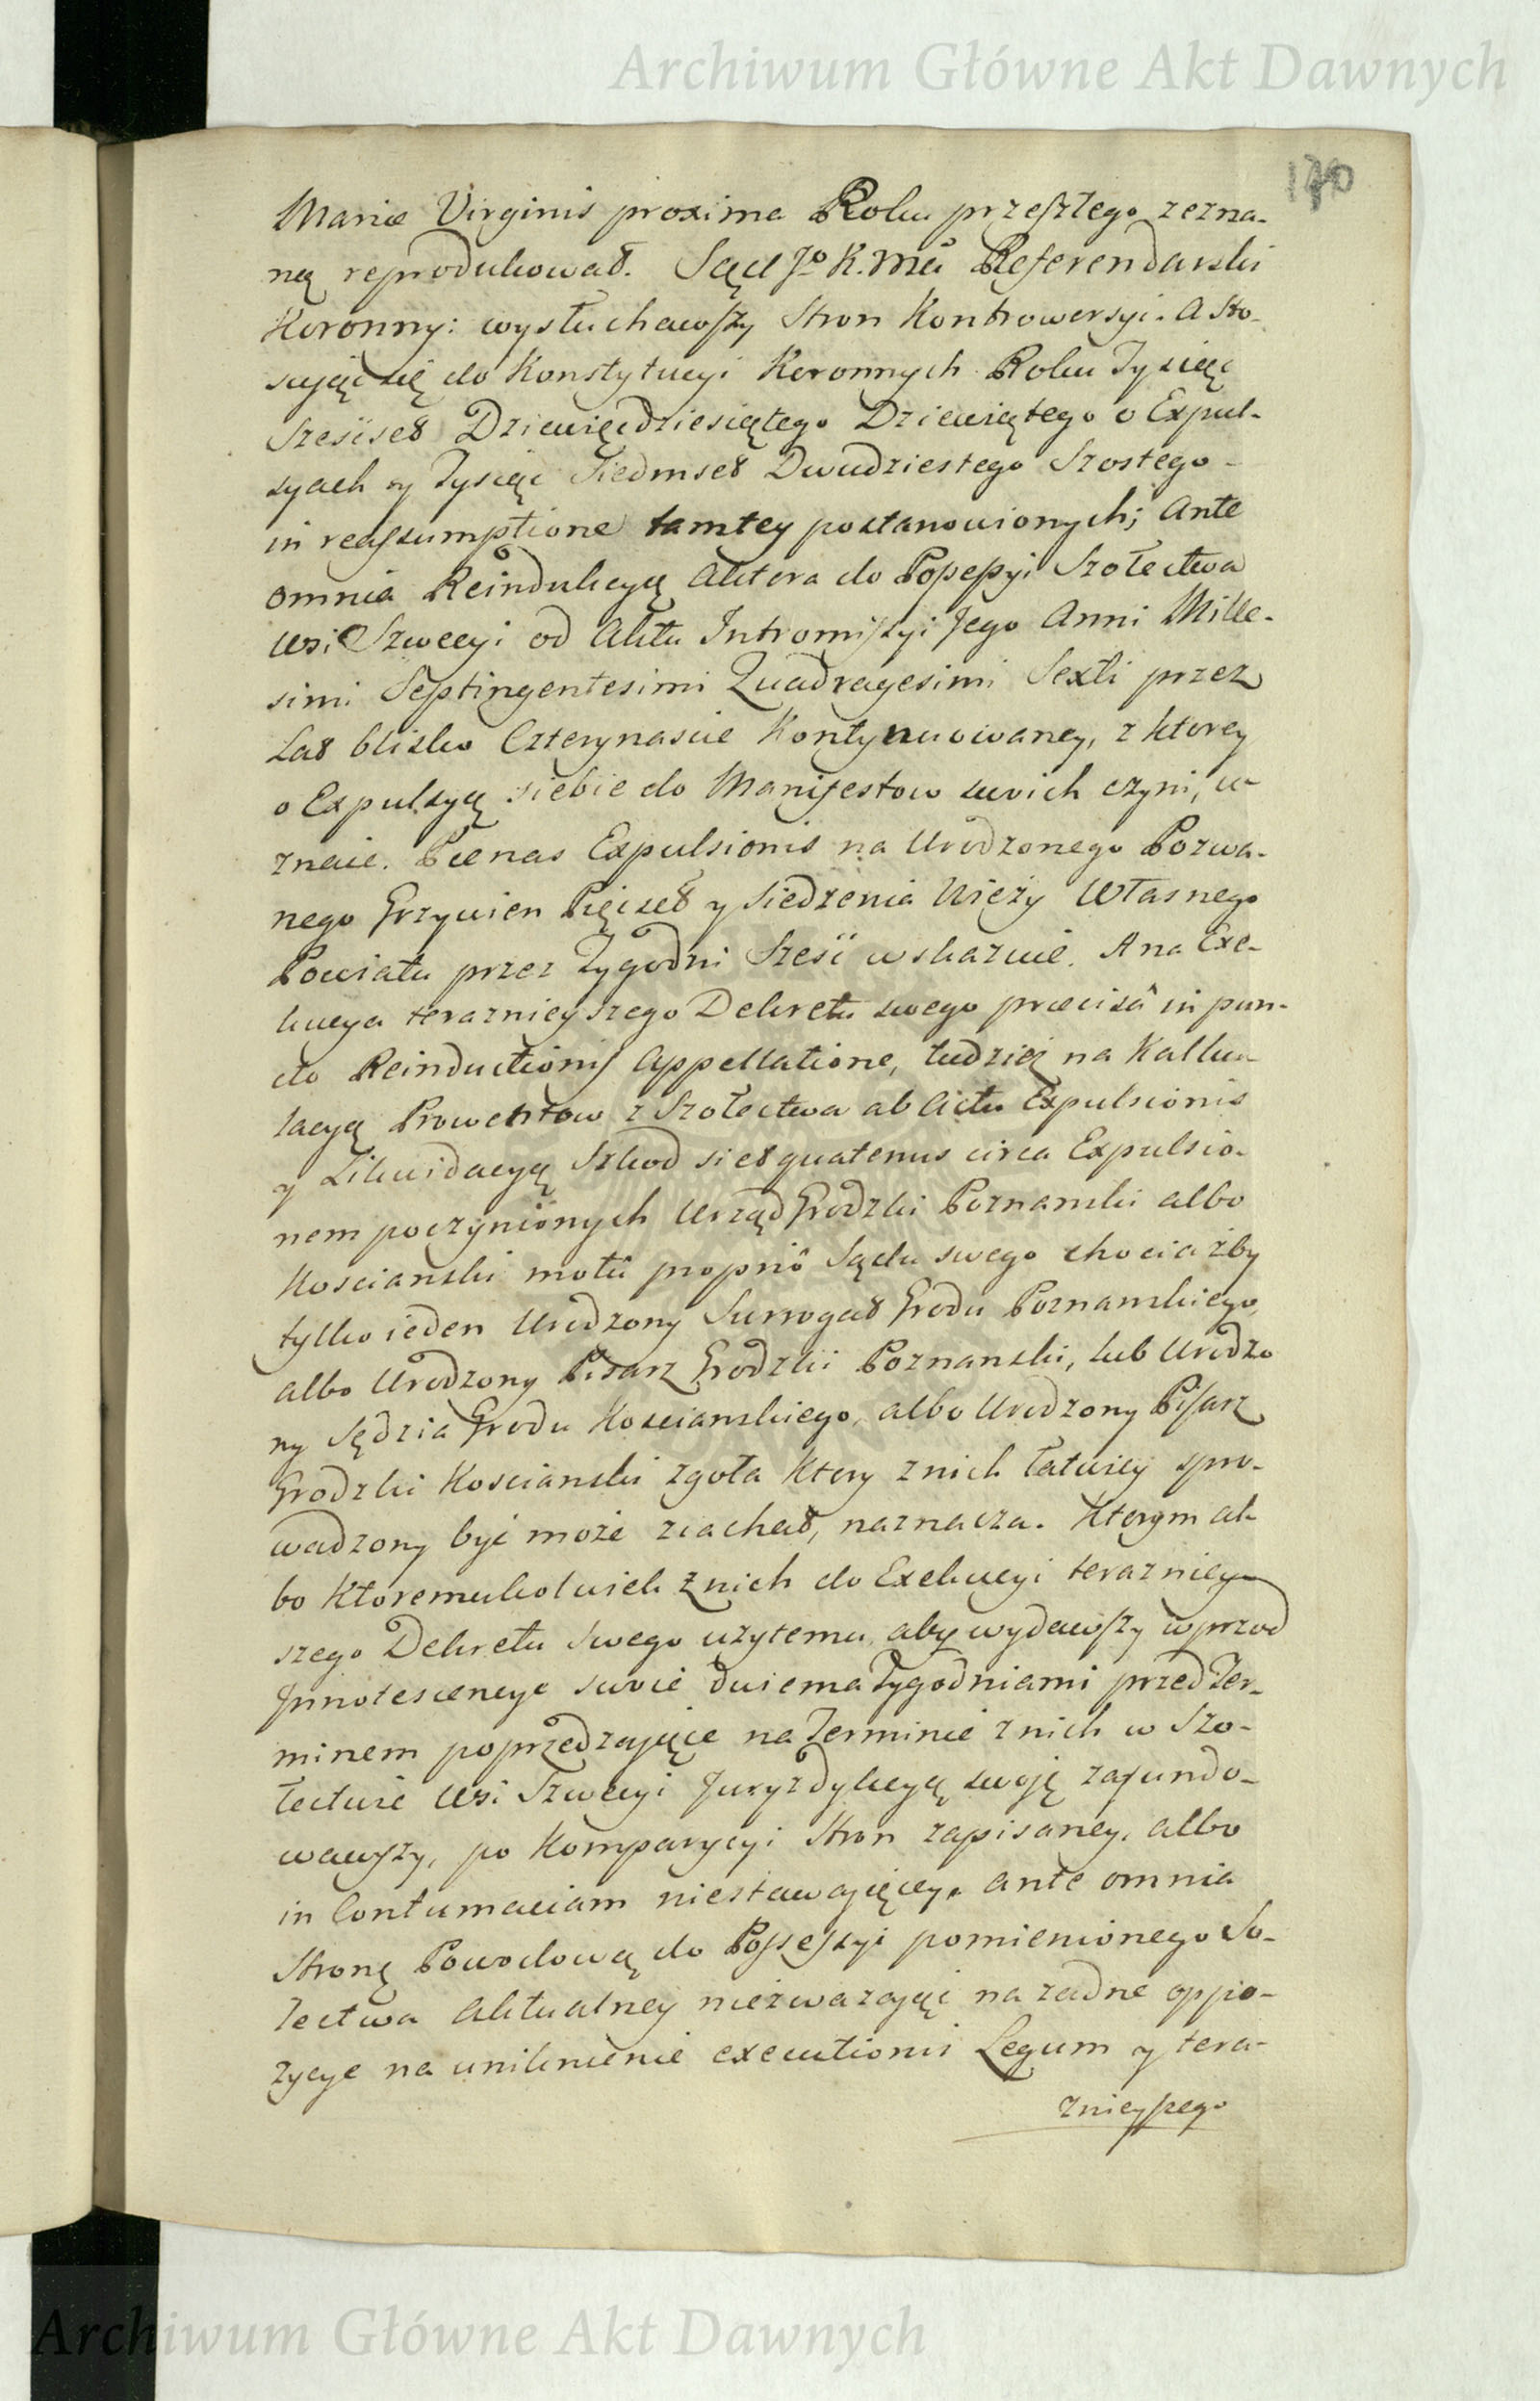 Archiwum Główne Akt Dawnych
170
Mariæ Virginis proxima Roku przeszłego zezna-
ną reprodukował. Sąd Jº K. Mci Referendarski
Koronny: wysłuchawszy Stron Kontrowersyi. A sto-
sując się do Konstytucyi Koronnych Roku Tysiąc
Szescset Dziewięcdziesiątego Dziewiątego o Expul-
syach y Tysiąc Siedmset Dwudziestego Szostego -
in reassumptione tamtey postanowionych; Ante
omnia Reindukcyą Aktora do Possessyi Szołectwa
wsi Szwecyi od Aktu Intromissyi Jego Anni Mille-
simi Septingentesimi Quadragesimi Sexti przez
Lat blisko Czterynascie Kontynuowaney, z ktorey
o Expulsyą siebie do Manifestow swoich czyni, u-
znaie. Pœnas Expulsionis na Urodzonego Pozwa-
nego Grzywien Pięcset y siedzenia Wieży Własnego
Powiatu przez Tygodni Szesc wskazuie. A na Exe-
kucya terazniejszego Dekretu swego præcisâ in pun-
cto Reinductionis Appellatione, tudzież na Kalku-
lacyą Prowentow z Szołectwa ab Actu Expulsionis
y Likwidacyą Szkod si et quatenus circa Expulsio-
nem poczynionych Urząd Grodzki Poznanski albo
Koscianski motû propriô Sądu swego chociażby
tylko ieden Urodzony Surrogat Grodu Poznanskiego,
albo Urodzony Pisarz Grodzki Poznanski, lub Urodzo
ny Sędzia Grodu Koscianskiego, albo Urodzony Pisarz
Grodzki Koscianski zgoła ktory z nich łatwiey spro-
wadzony być może ziachał, naznacza. Ktorym al-
bo ktoremukolwiek z nich do Exekucyi terazniey-
szego Dekretu swego użytemu, aby wydawszy wprzod
Innotescencye swoie dwiema Tygodniami przed Ter-
minem poprzedzaiące na Terminie z nich w Szo-
łectwie wsi Szwecyi Juryzdykcyą swoię zafundo-
wawszy, po Komparycyi Stron zapisaney, albo
in Contumaciam niestawaiącey, ante omnia
Stronę Powodową do Possessyi pomienionego So-
łectwa Aktualney nieżważaiąc na żadne oppo-
zycye na uniknienie executionis Legum y tera-
znieyszego
Archiwum Główne Akt Dawnych